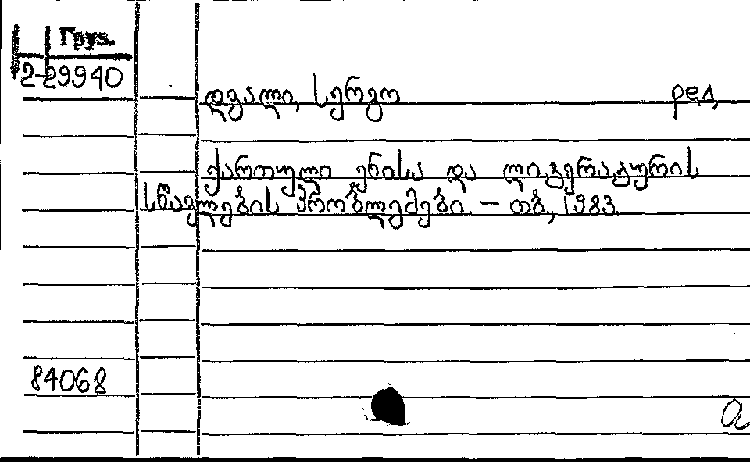 Груз.
2-29940
დვალი, სერგო ред.
ქართული ენისა და ლიტერატურის
სწავლების პრობლემები. — თბ., 1983.
84068
a